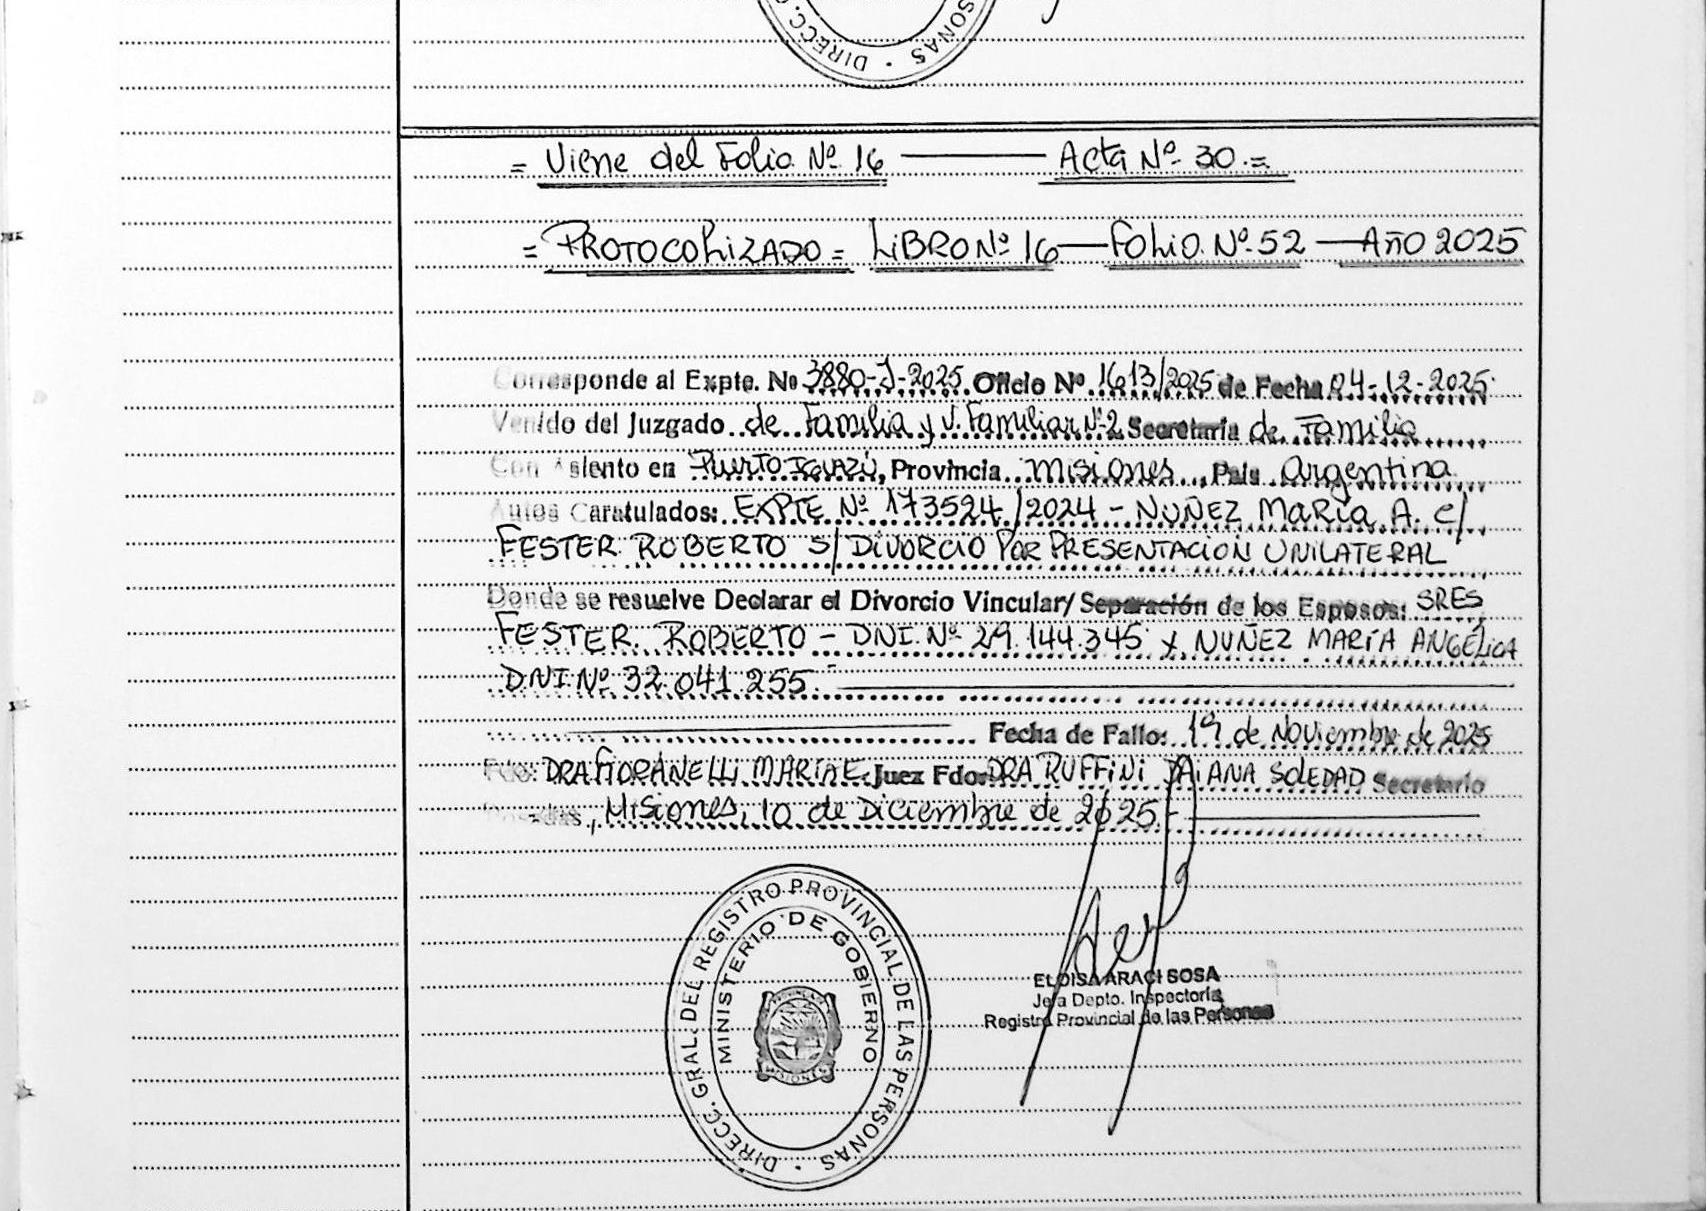 DIRECC. SONAS
= Viene del Folio Nº 16 ——— Acta Nº 30.=
= PROTOCOLIZADO = LIBRO Nº 16 — FOLIO Nº 52 — AÑO 2025
Corresponde al Expte. Nº 3880-J-2025 Oficio Nº 1613/2025 de Fecha 04-12-2025
Venido del Juzgado de Familia y V. Familiar Nº 2 Secretaría de Familia
Con Asiento en Puerto Iguazú, Provincia Misiones, País Argentina
Autos Caratulados: EXPTE Nº 173524/2024 - NUÑEZ MARÍA A. c/
FESTER ROBERTO S/ DIVORCIO POR PRESENTACIÓN UNILATERAL
Donde se resuelve Declarar el Divorcio Vincular/ Separación de los Esposos: SRES
FESTER ROBERTO - DNI. Nº 29.144.345 y NUÑEZ MARÍA ANGÉLICA
DNI Nº 32.041.255.-
Fecha de Fallo: 19 de Noviembre de 2025
Fdo: DRA FIORANELLI MARÍA E. Juez Fdo: DRA RUFFINI DAIANA SOLEDAD Secretario
Posadas, Misiones, 10 de Diciembre de 2025.-
DIRECC. GRAL. DEL REGISTRO PROVINCIAL DE LAS PERSONAS
MINISTERIO DE GOBIERNO
MISIONES
ELOISA ARACI SOSA
Jefa Depto. Inspectoría
Registro Provincial de las Personas